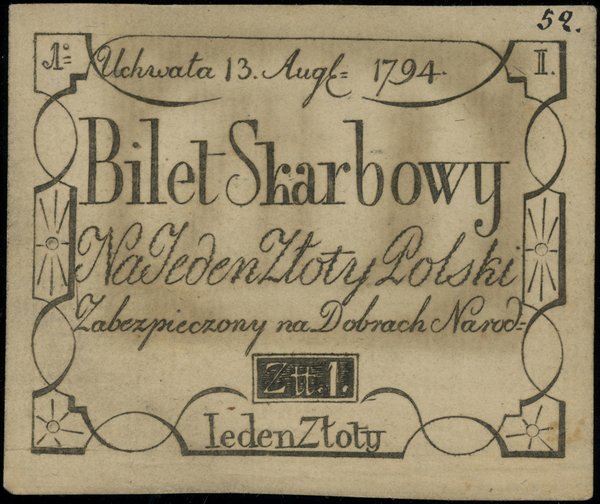 52.
1º= Uchwała 13. Augt= 1794. I.
Bilet Skarbowy
Na Jeden Złoty Polski
Zabezpieczony na Dobrach Narod=
Złł. 1.
Ieden Złoty